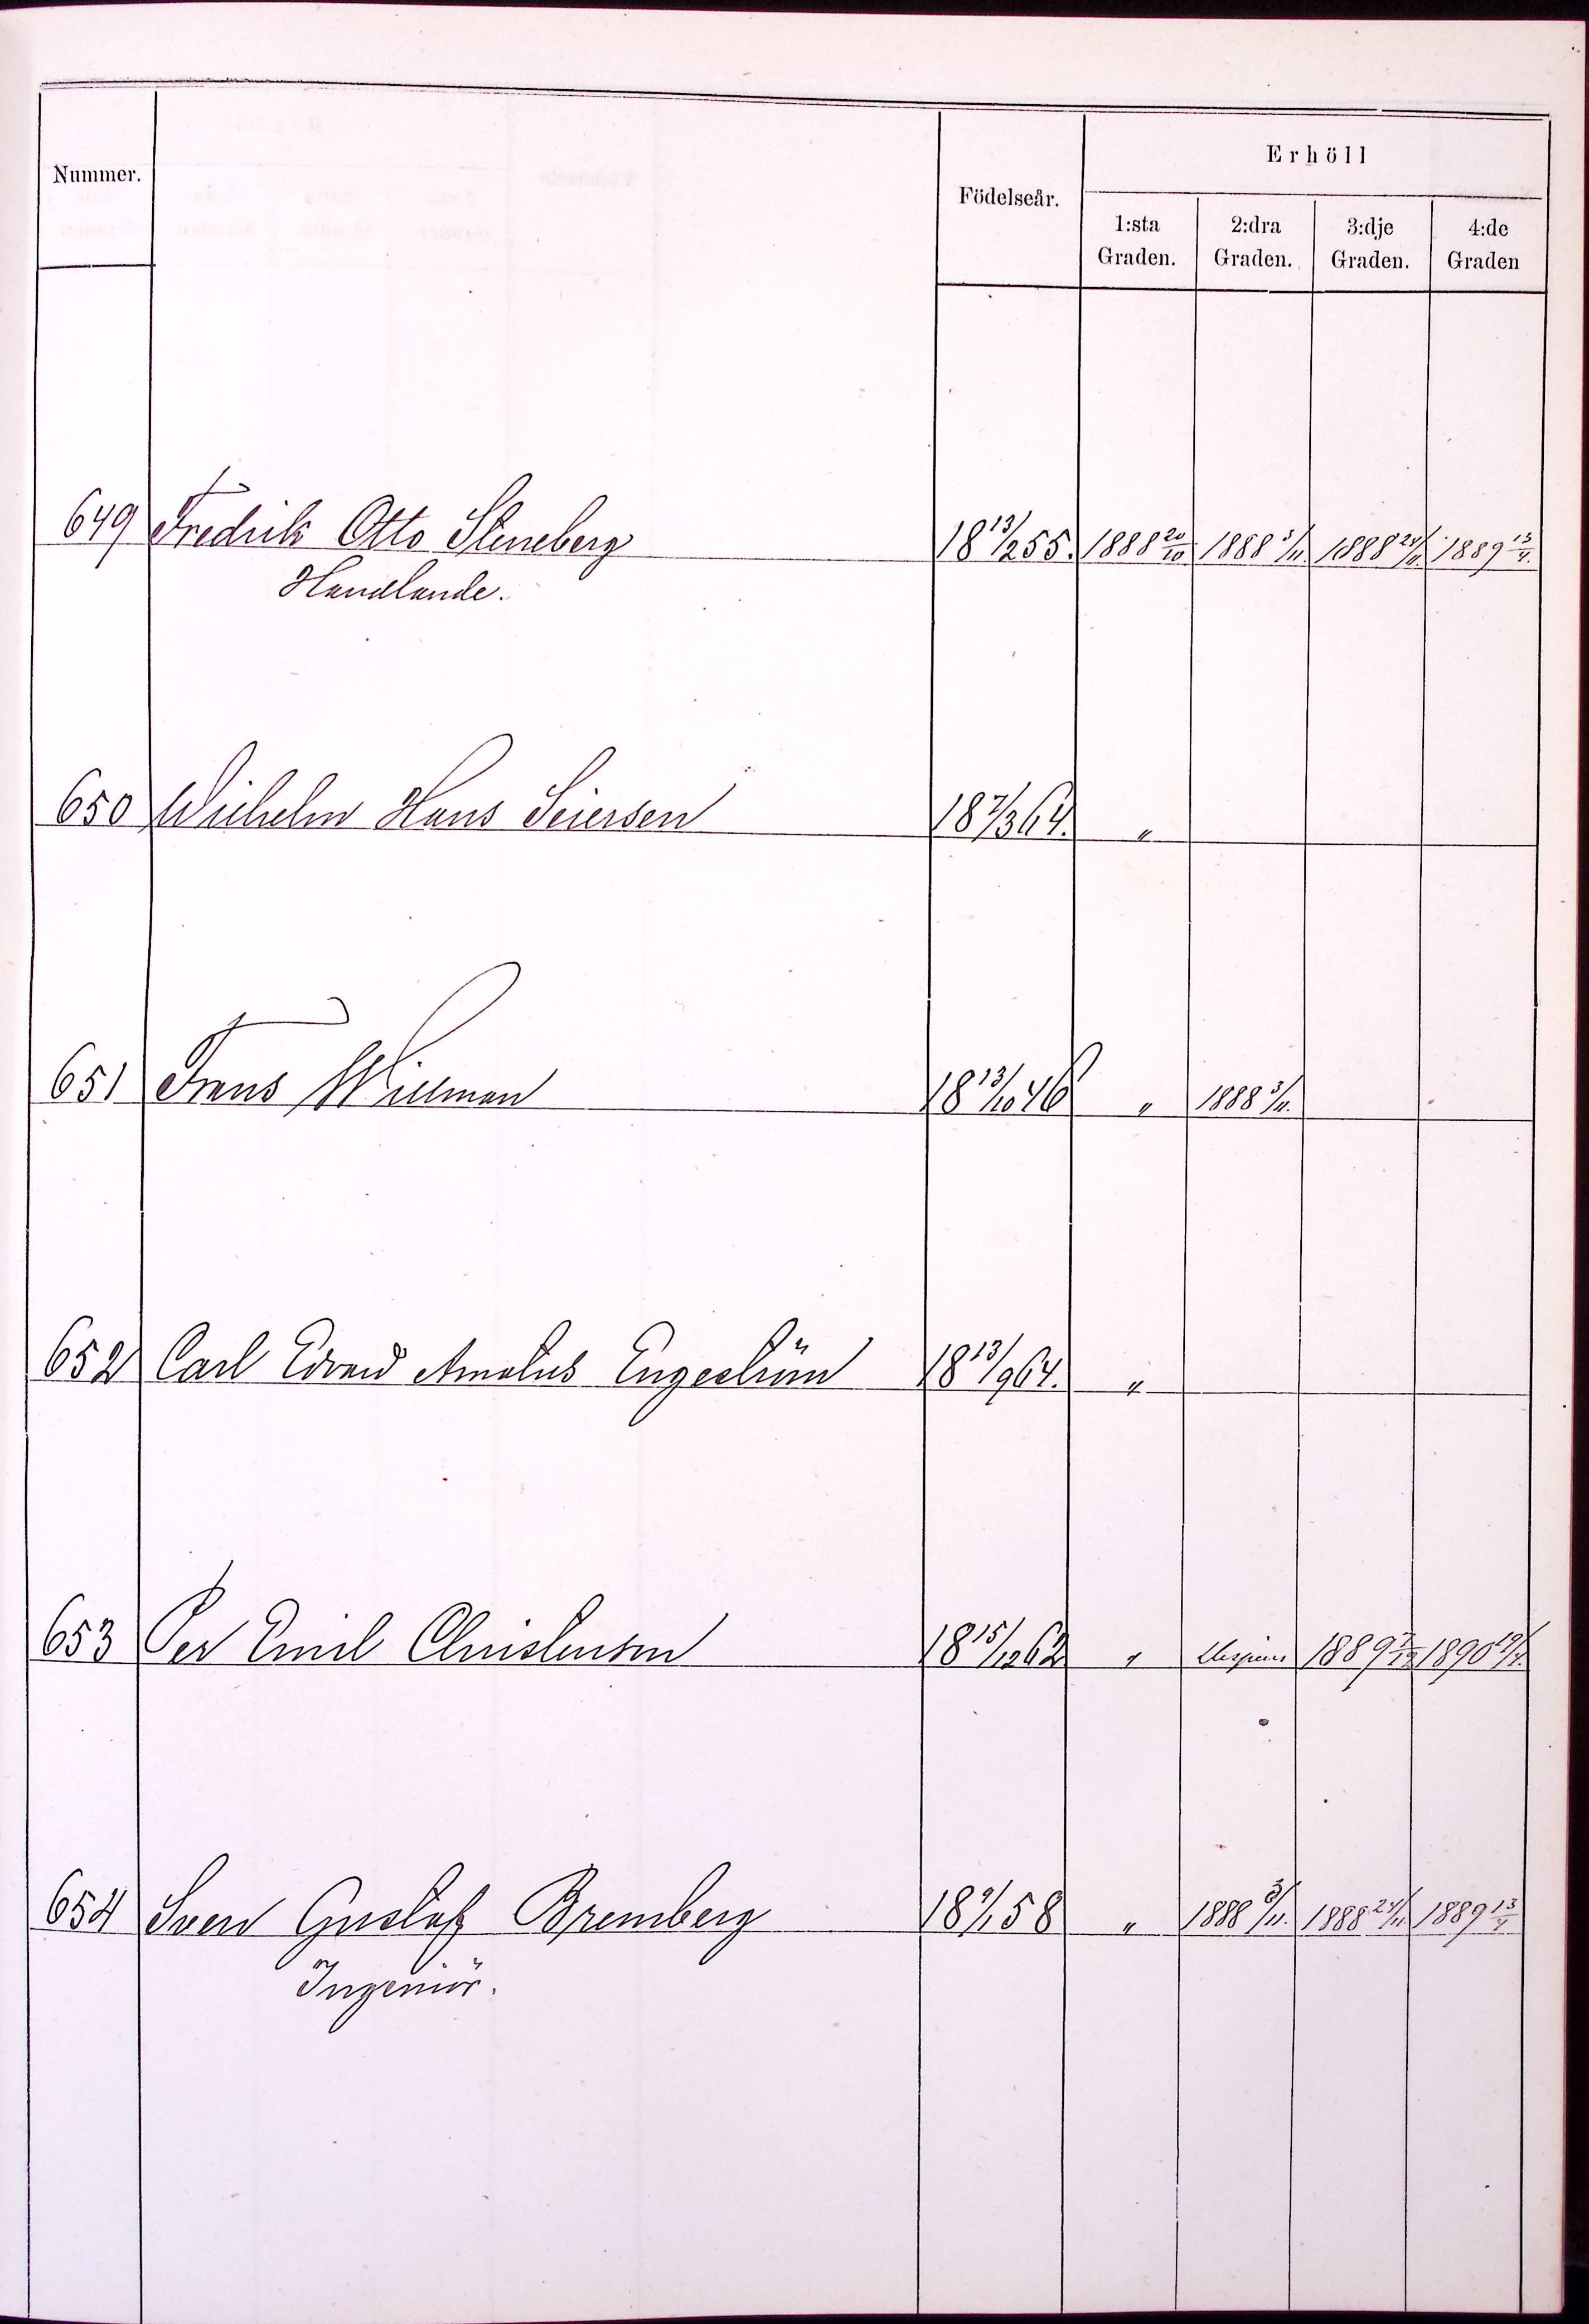 Nummer.
Födelseår.
Erhöll
1:sta Graden.
2:dra Graden.
3:dje Graden.
4:de Graden
649 Fredrik Otto Steneberg 18 13/2 55. 1888 20/10. 1888 3/11. 1888 24/11. 1889 13/4.
Handlande.
650 Wilhelm Hans Seiersen 18 7/3 64. "
651 Frans Willman 18 13/10 46 " 1888 3/11.
652 Carl Edvard Amatus Engeström 18 13/9 64. "
653 Per Emil Christensen 18 15/12 62 " 1889 7/12 1890 19/4.
654 Sven Gustaf Bremberg 18 9/1 58 " 1888 3/11. 1888 24/11. 1889 13/4
Ingeniör.